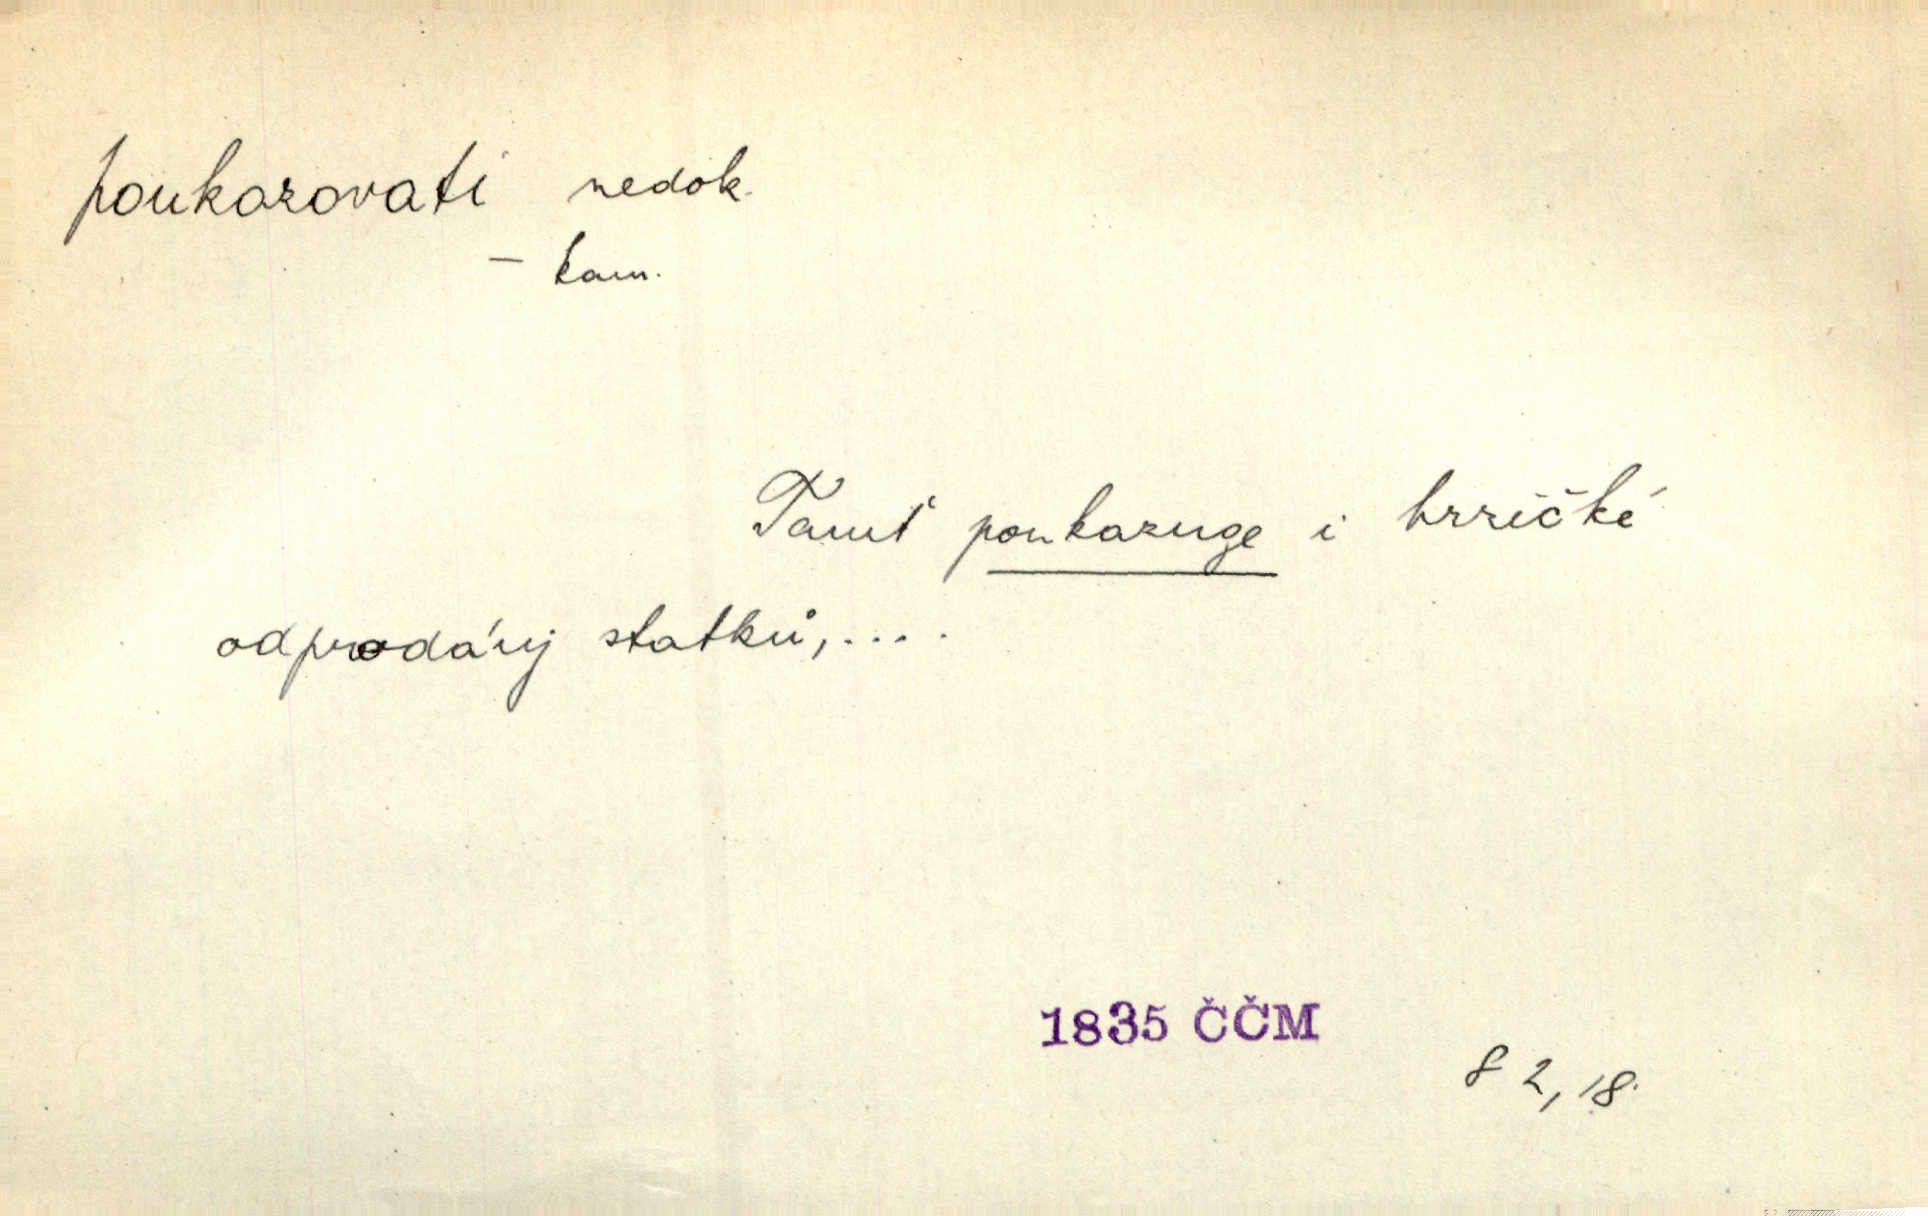 poukazovati nedok.
– kam.
Tamť poukazuge i hrričké
odprodáwj statků,....
1835 ČČM
8 2, 18.